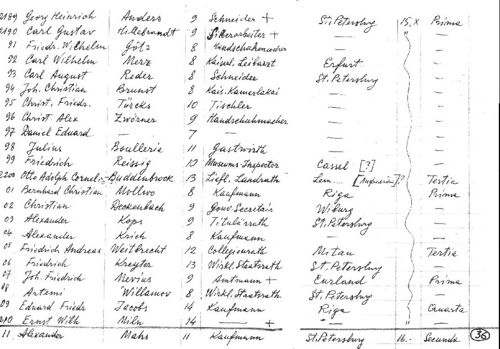 2189 Georg Heinrich Anders 9 Schneider + St. Petersburg 15, X Prima
2190 Carl Gustav Hildebrandt 9 Silberarbeiter + — " —
91 Friedr. Wilhelm Götz 8 Handschuhmacher — —
92 Carl Wilhelm Merz 8 Kaiserl. Leibarzt Erfurt —
93 Carl August Reder 8 Schneider St. Petersburg —
94 Joh. Christian Brunst 8 Kais. Kamerlakai — —
95 Christ. Friedr. Türcks 10 Tischler — —
96 Christ. Alex Zwörner 9 Handschuhmacher — —
97 Daniel Eduard — 7 — — —
98 Julius Boullerie 11 Gastwirth — —
99 Friedrich Reissig 10 Museums-Inspector Cassel [?] —
2200 Otto Adolph Cornel. Buddenbrock 13 Liefl. Landrath Tertia
01 Bernhard Christian Mollwo 8 Kaufmann Riga Prima
02 Christian Deckenbach 9 Gouv. Secretair Wiburg —
03 Alexander Kops 9 Titulärrath St. Petersburg —
04 Alexander Krich 8 Kaufmann — —
05 Friedrich Andreas Weitbrecht 12 Collegienrath Mitau Tertia
06 Friedrich Kreyter 13 Wirkl. Staatsrath St. Petersburg —
07 Joh. Friedrich Mevius 9 Amtmann + Curland Prima
08 Artemi Willamov 8 Wirkl. Staatsrath St. Petersburg —
09 Eduard Friedr Jacobs 14 Kaufmann Riga Quarta
2210 Ernst Wilh 14 — + — " —
11 Alexander Mahs 11 Kaufmann St. Petersburg 16.- Secunda
36